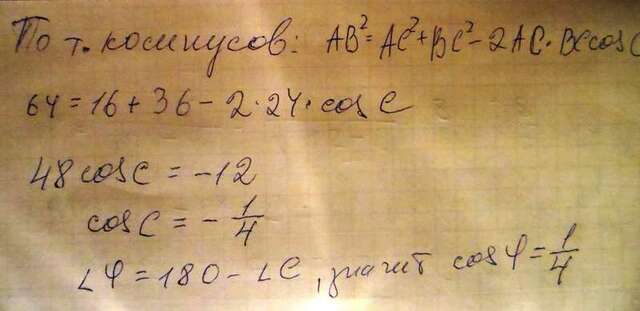 По т. косинусов: AB² = AC² + BC² - 2AC · BC cos C
64 = 16 + 36 - 2 · 24 · cos C
48 cos C = -12
cos C = - 1/4
∠φ = 180 - ∠C, значит cos φ = 1/4